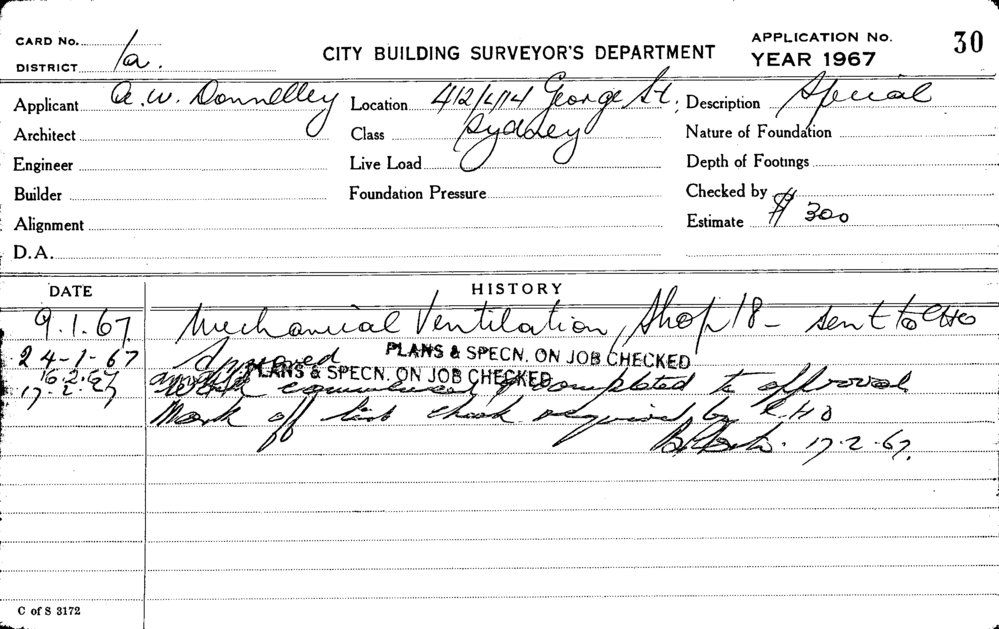 CARD No.
DISTRICT 1a.
CITY BUILDING SURVEYOR'S DEPARTMENT
APPLICATION No. 30
YEAR 1967
Applicant A.W. Donnelley Location 412/414 George St, Sydney Description Special
Architect Class Nature of Foundation
Engineer Live Load Depth of Footings
Builder Foundation Pressure Checked by
Alignment Estimate $ 300
D.A.
DATE HISTORY
9.1.67. Mechanical Ventilation, Shop 18 - sent to CHO
24-1-67 Approved PLANS & SPECN. ON JOB CHECKED
16.2.67 PLANS & SPECN. ON JOB CHECKED
17.2.67 Work commenced & completed to approval
Mark off list check required by CHO
17.2.67.
C of S 3172